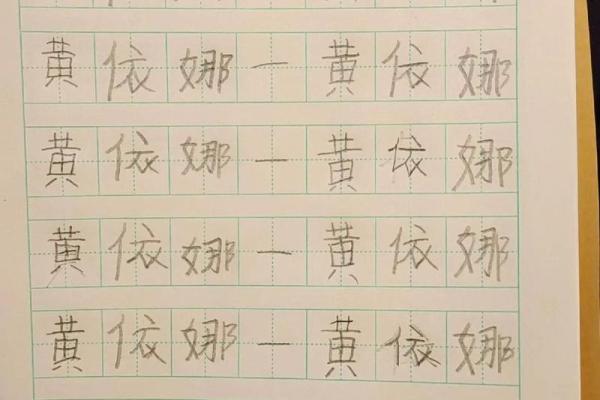 黄依娜一黄依娜
黄依娜一黄依娜
黄依娜一黄依娜
黄依娜一黄依娜